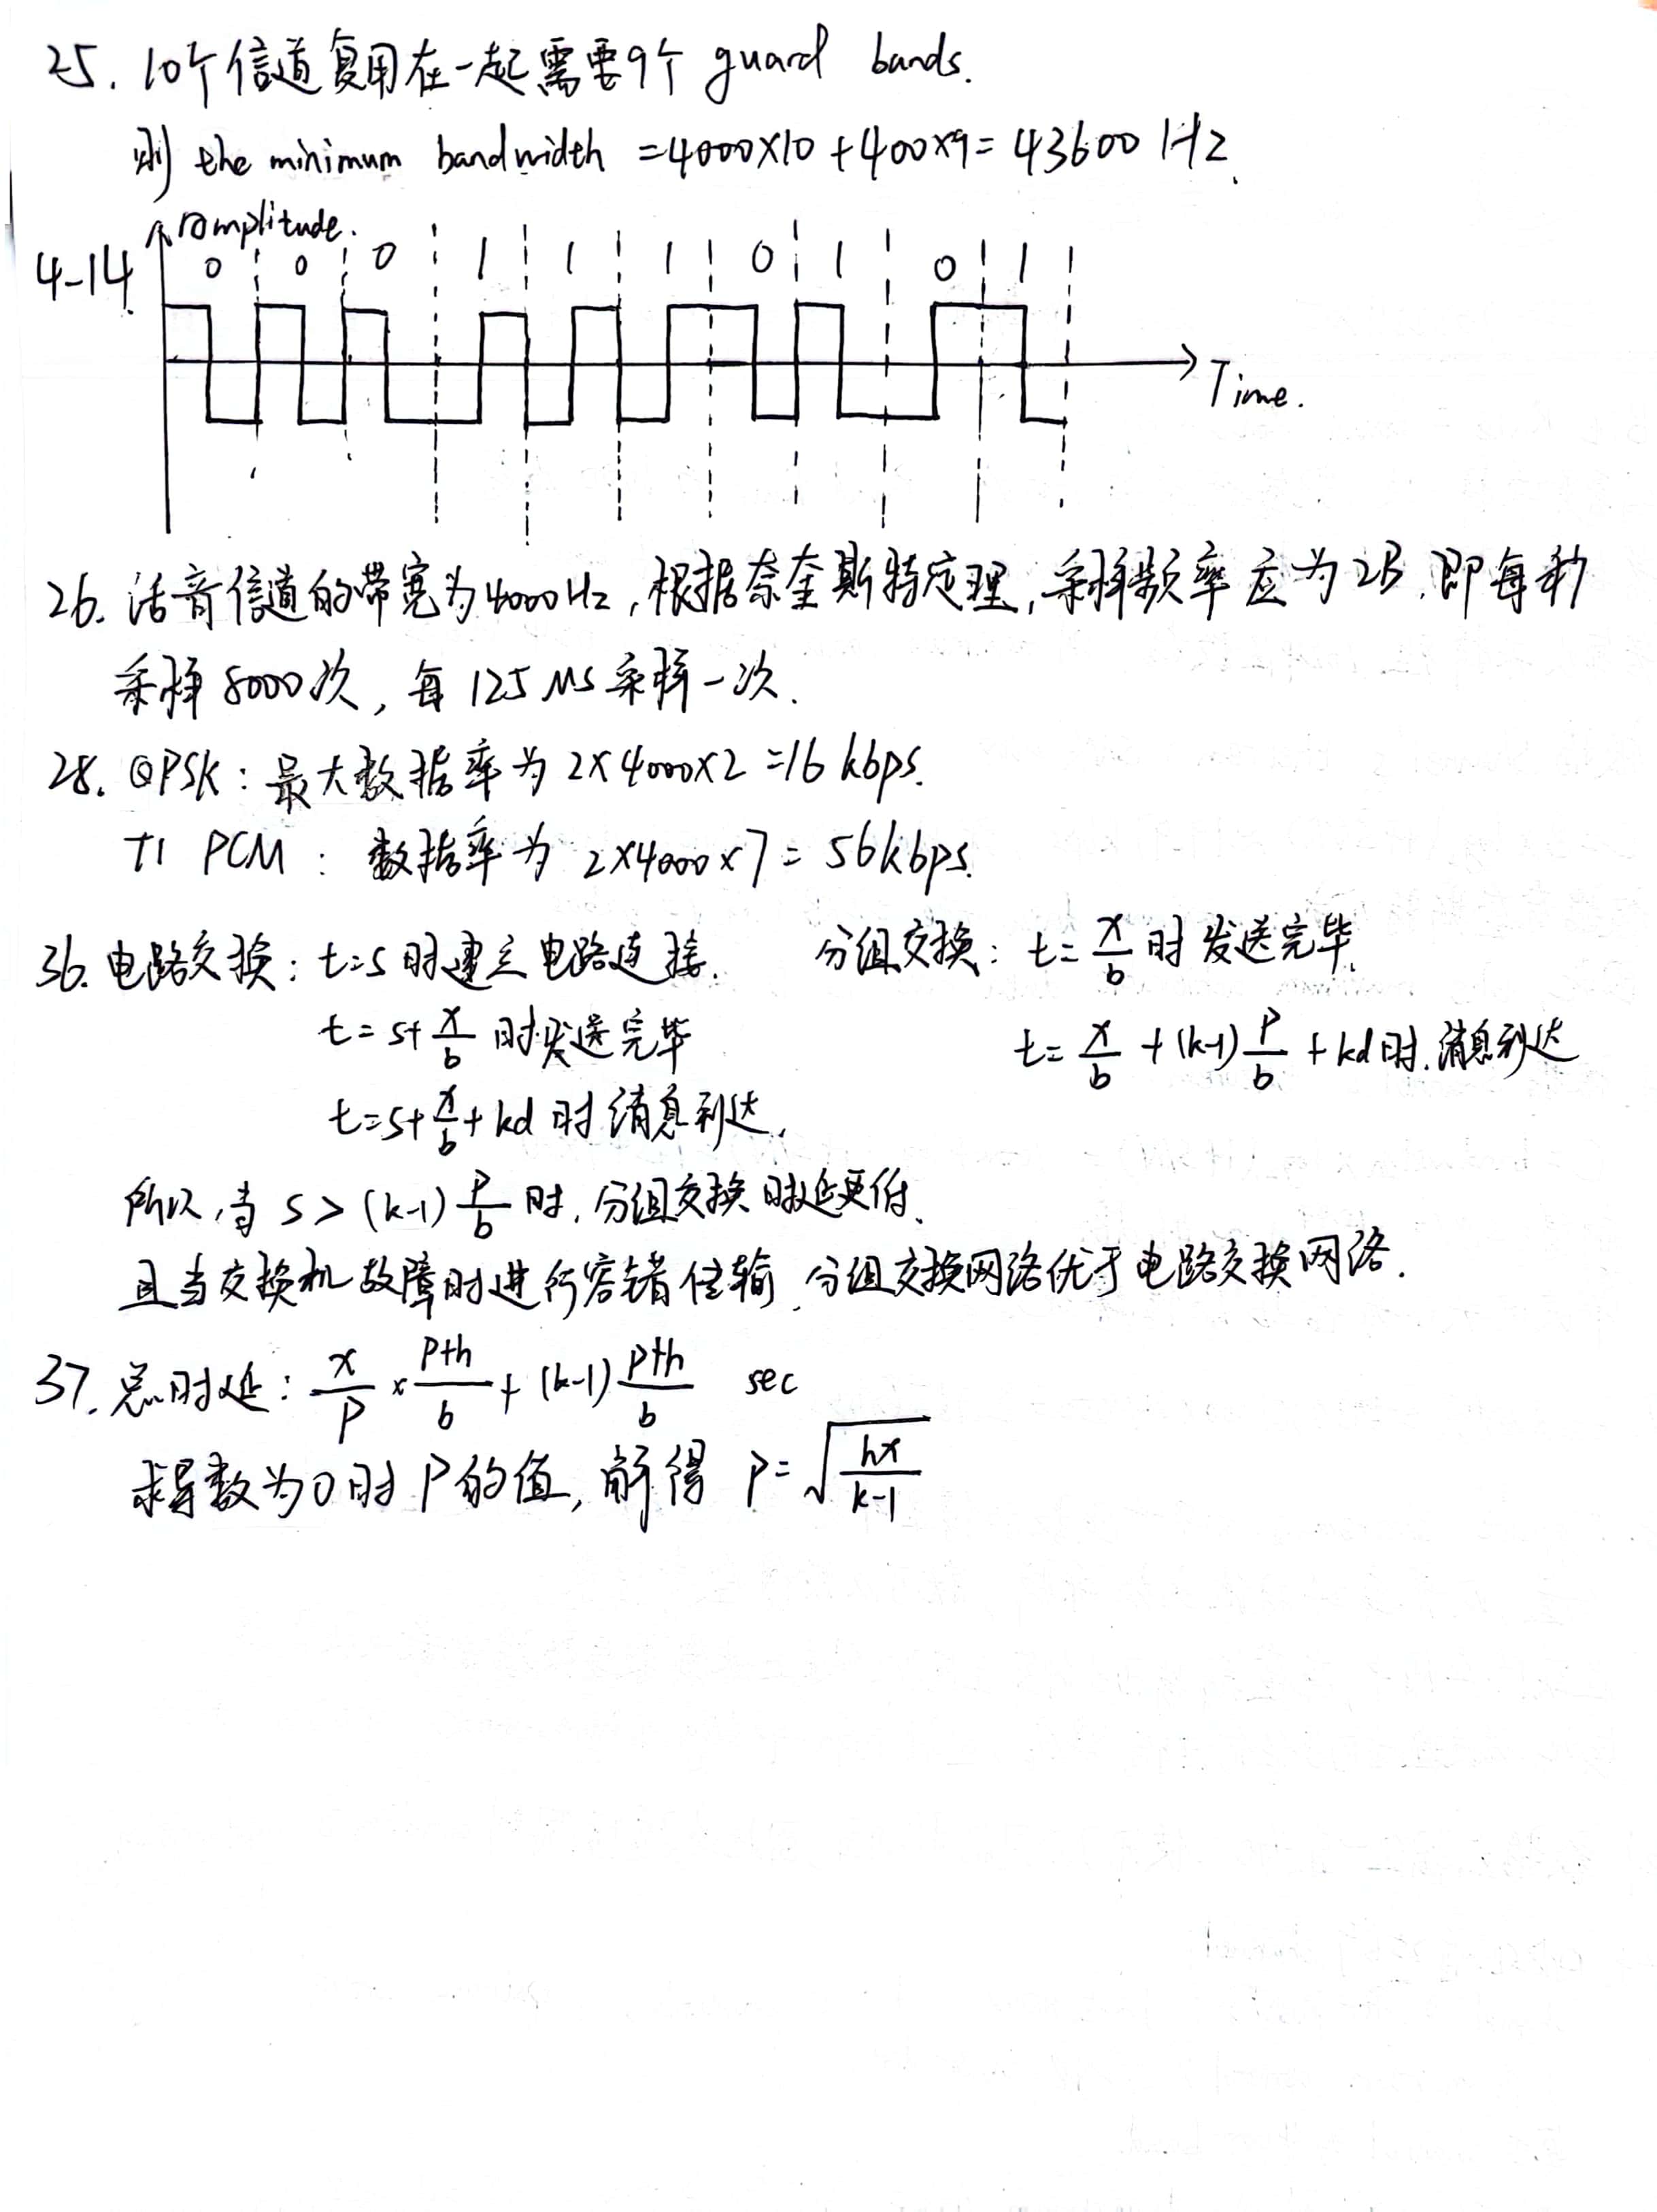 25. 10个信道复用在一起需要9个 guard bands.
则 the minimum bandwidth = 4000×10 + 400×9 = 43600 Hz.
4-14.
Amplitude.
0 0 0 1 1 1 0 1 0 1
Time.
26. 话音信道的带宽为4000Hz, 根据奈奎斯特定理, 采样频率应为2B, 即每秒
采样8000次, 每125μs采样一次.
28. QPSK: 最大数据率为 2×4000×2=16 kbps.
T1 PCM: 数据率为 2×4000×7= 56kbps.
36. 电路交换: t=s 时建立电路连接.
t= s+x/b 时发送完毕
t=s+x/b+kd 时消息到达.
分组交换: t= x/b 时发送完毕.
t= x/b + (k-1)p/b + kd时, 消息到达
所以, 当 s > (k-1) p/b 时, 分组交换时延更低.
且当交换机故障时进行容错传输, 分组交换网络优于电路交换网络.
37. 总时延: x/p × p+h/b + (k-1) p+h/b sec
求导数为0时 P的值, 解得 p= √hx/k-1